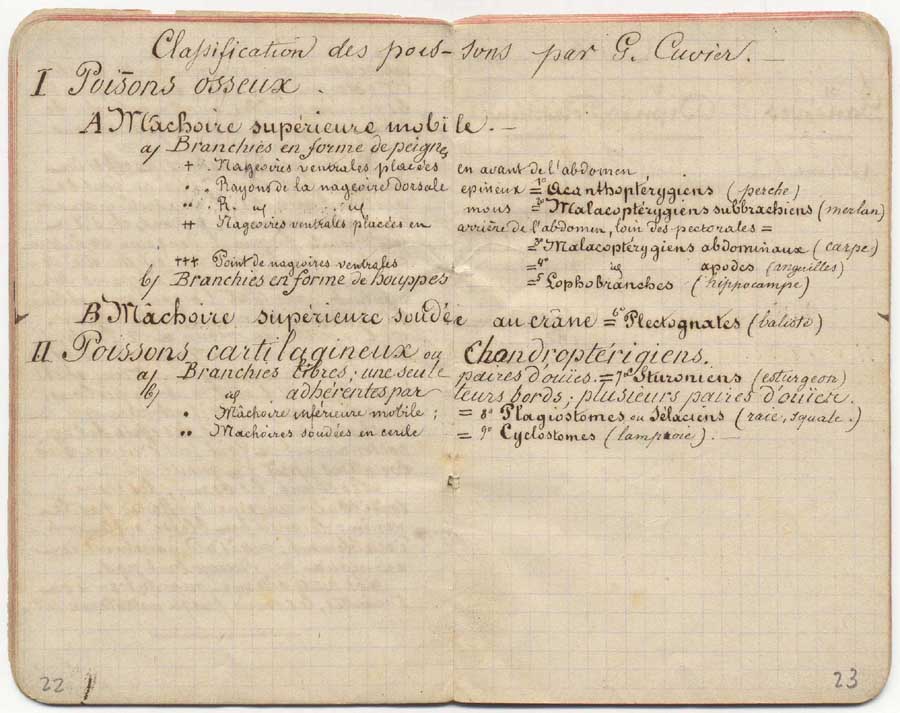 Classification des pois-sons par G. Cuvier. —
I Poissons osseux.
A Mâchoire supérieure mobile. —
a) Branchies en forme de peigne
+ . Nageoires ventrales placées en avant de l'abdomen
• . Rayons de la nageoire dorsale épineux = 1° Acanthoptérygiens (perche)
•• . R. id id mous = 2° Malacoptérygiens subbrachiens (merlan)
++ Nageoires ventrales placées en arrière de l'abdomen, loin des pectorales =
= 3° Malacoptérygiens abdominaux (carpe)
+++ Point de nageoires ventrales = 4° id apodes (anguilles)
b) Branchies en forme de houppes = 5° Lophobranches (hippocampe)
B Mâchoire supérieure soudée au crâne = 6° Plectognates (baliste)
II Poissons cartilagineux ou Chondroptérigiens.
a) Branchies libres ; une seule paires d'ouïes. = 7° Sturoniens (esturgeon)
b) id adhérentes par leurs bords ; plusieurs paires d'ouïer.
• Mâchoire inférieure mobile ; = 8° Plagiostomes ou Sélaciens (raie, squale.)
•• Machoires soudées en cercle = 9° Cyclostomes (lamproie). —
22
23